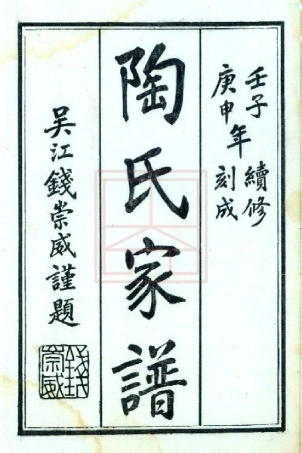 壬子續修
庚申年刻成
陶氏家譜
吳江錢崇威謹題
錢崇威